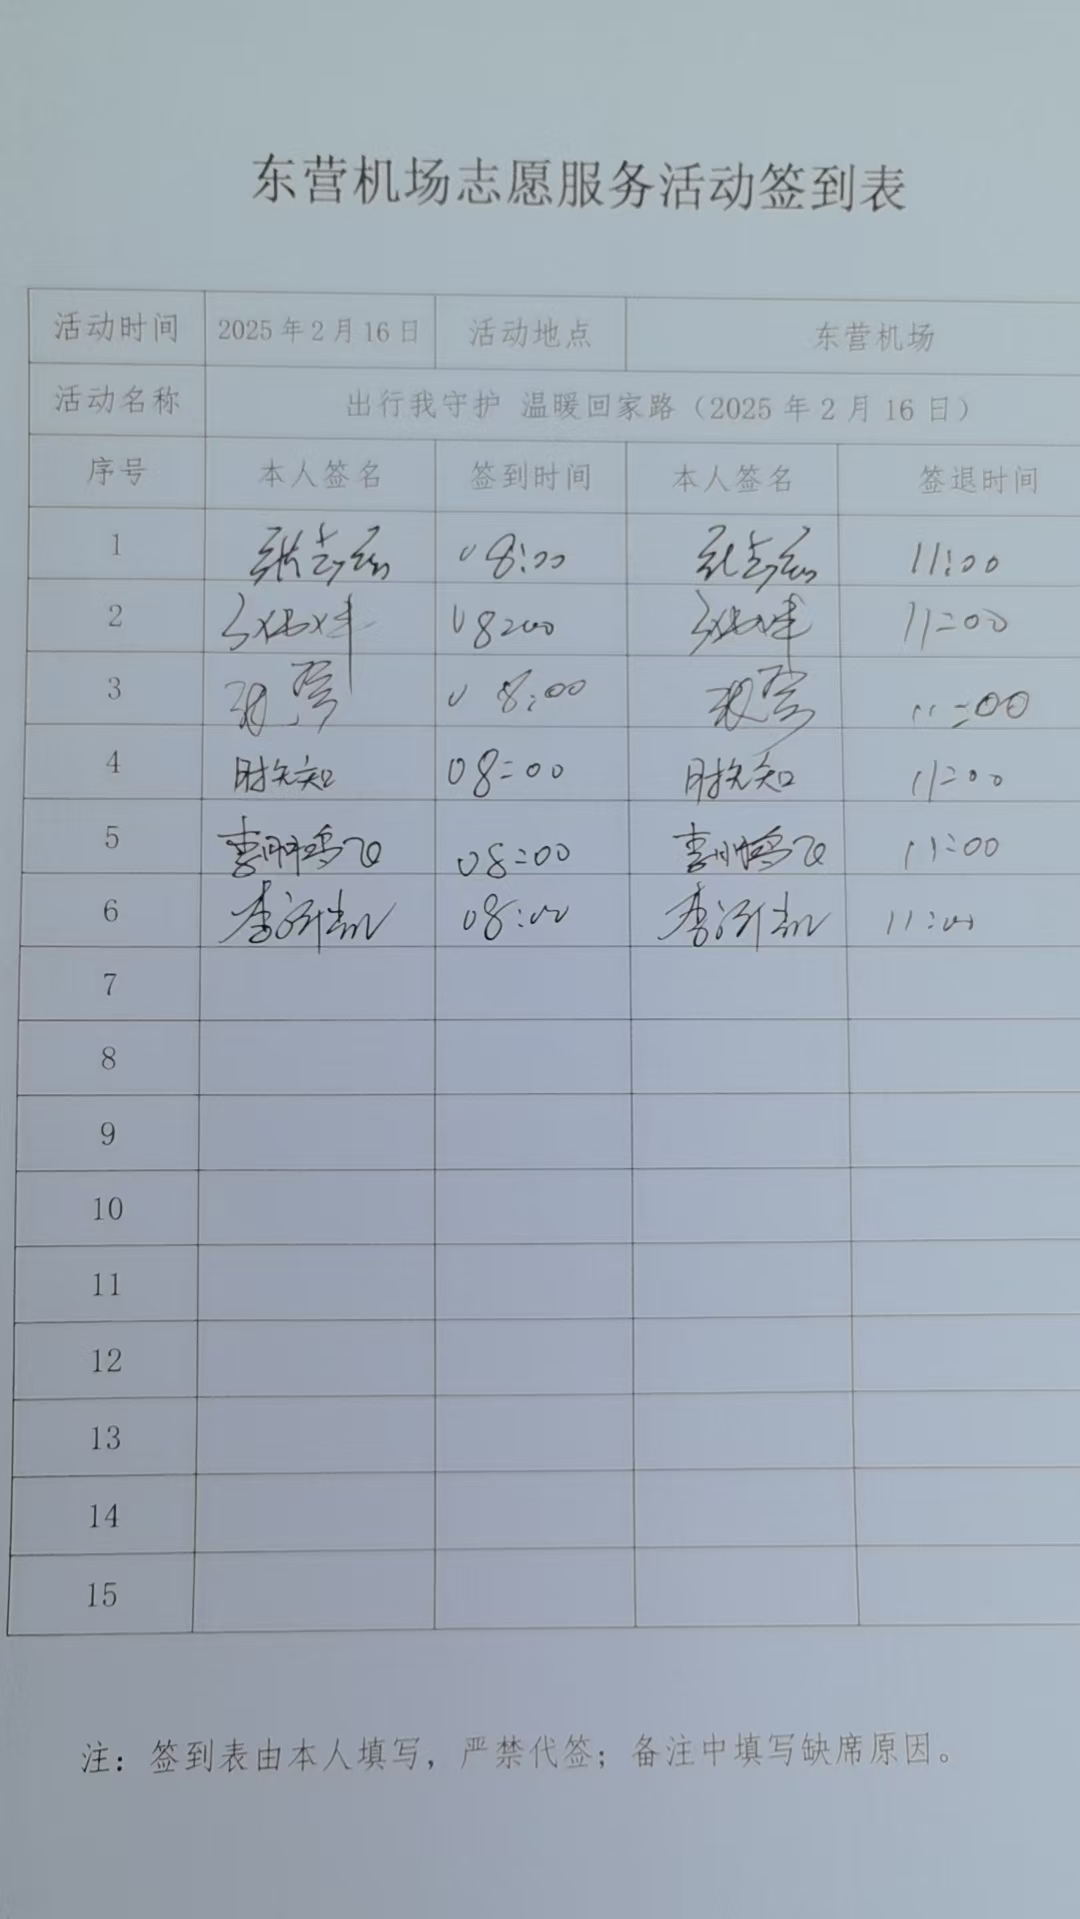 东营机场志愿服务活动签到表
活动时间 2025年2月16日 活动地点 东营机场
活动名称 出行我守护 温暖回家路（2025年2月16日）
序号 本人签名 签到时间 本人签名 签退时间
1 08:00 11:00
2 08:00 11:00
3 08:00 11:00
4 时先知 08:00 时先知 11:00
5 08:00 11:00
6 08:00 11:00
7
8
9
10
11
12
13
14
15
注：签到表由本人填写，严禁代签；备注中填写缺席原因。